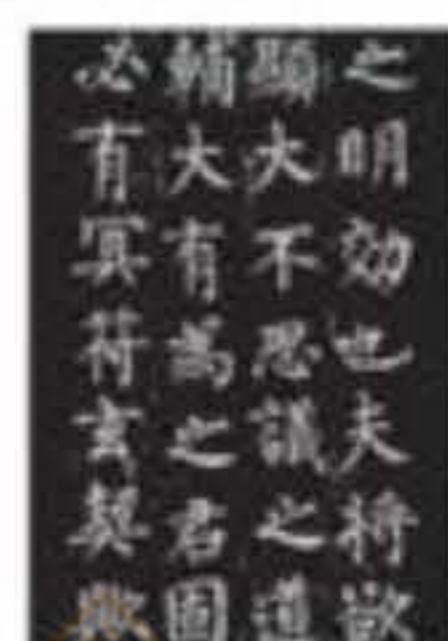 之明効也夫將欲
顯大不思議之道
輔大有為之君固
必有冥符玄契歟